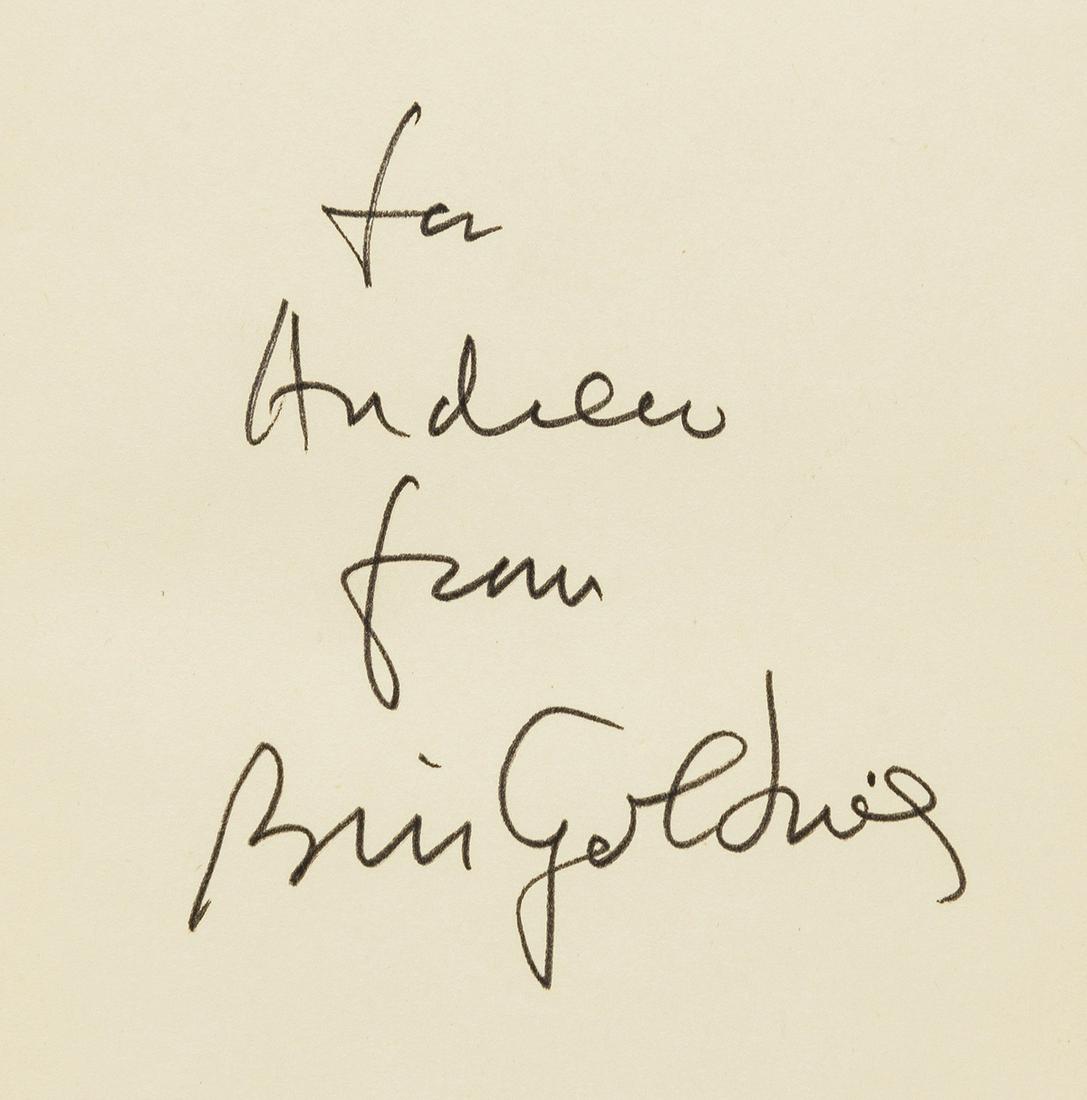 for
Andrew
from
Bill Golding